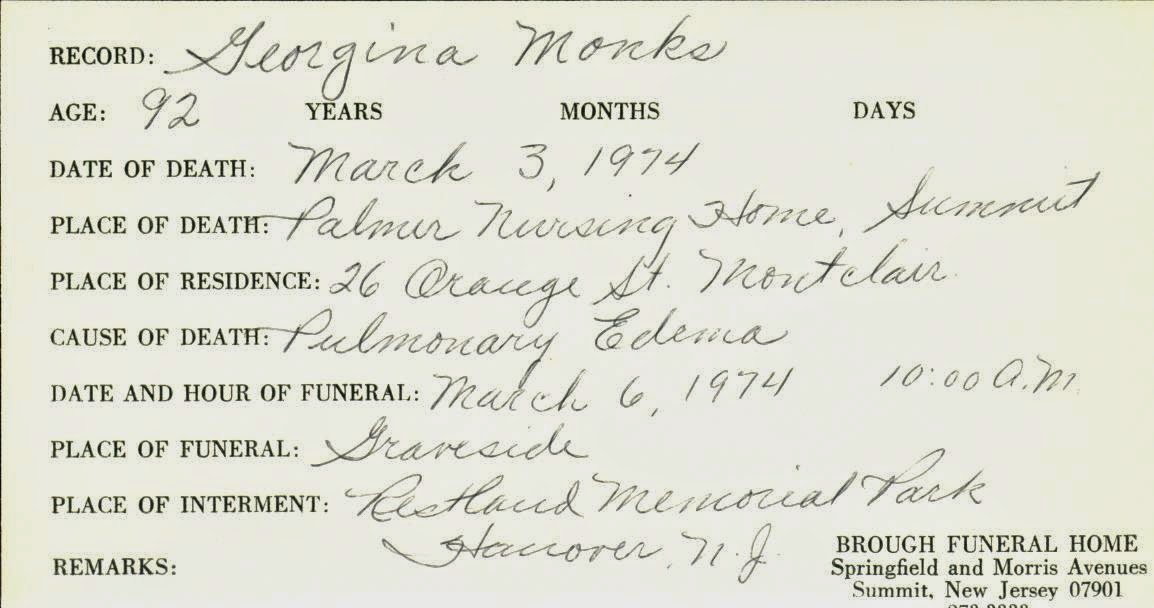 RECORD: Georgina Monks
AGE: 92 YEARS MONTHS DAYS
DATE OF DEATH: March 3, 1974
PLACE OF DEATH: Palmer Nursing Home, Summit
PLACE OF RESIDENCE: 26 Orange St. Montclair
CAUSE OF DEATH: Pulmonary Edema
DATE AND HOUR OF FUNERAL: March 6, 1974 10:00 A.M.
PLACE OF FUNERAL: Graveside
PLACE OF INTERMENT: Restland Memorial Park
Hanover, N.J.
REMARKS:
BROUGH FUNERAL HOME
Springfield and Morris Avenues
Summit, New Jersey 07901